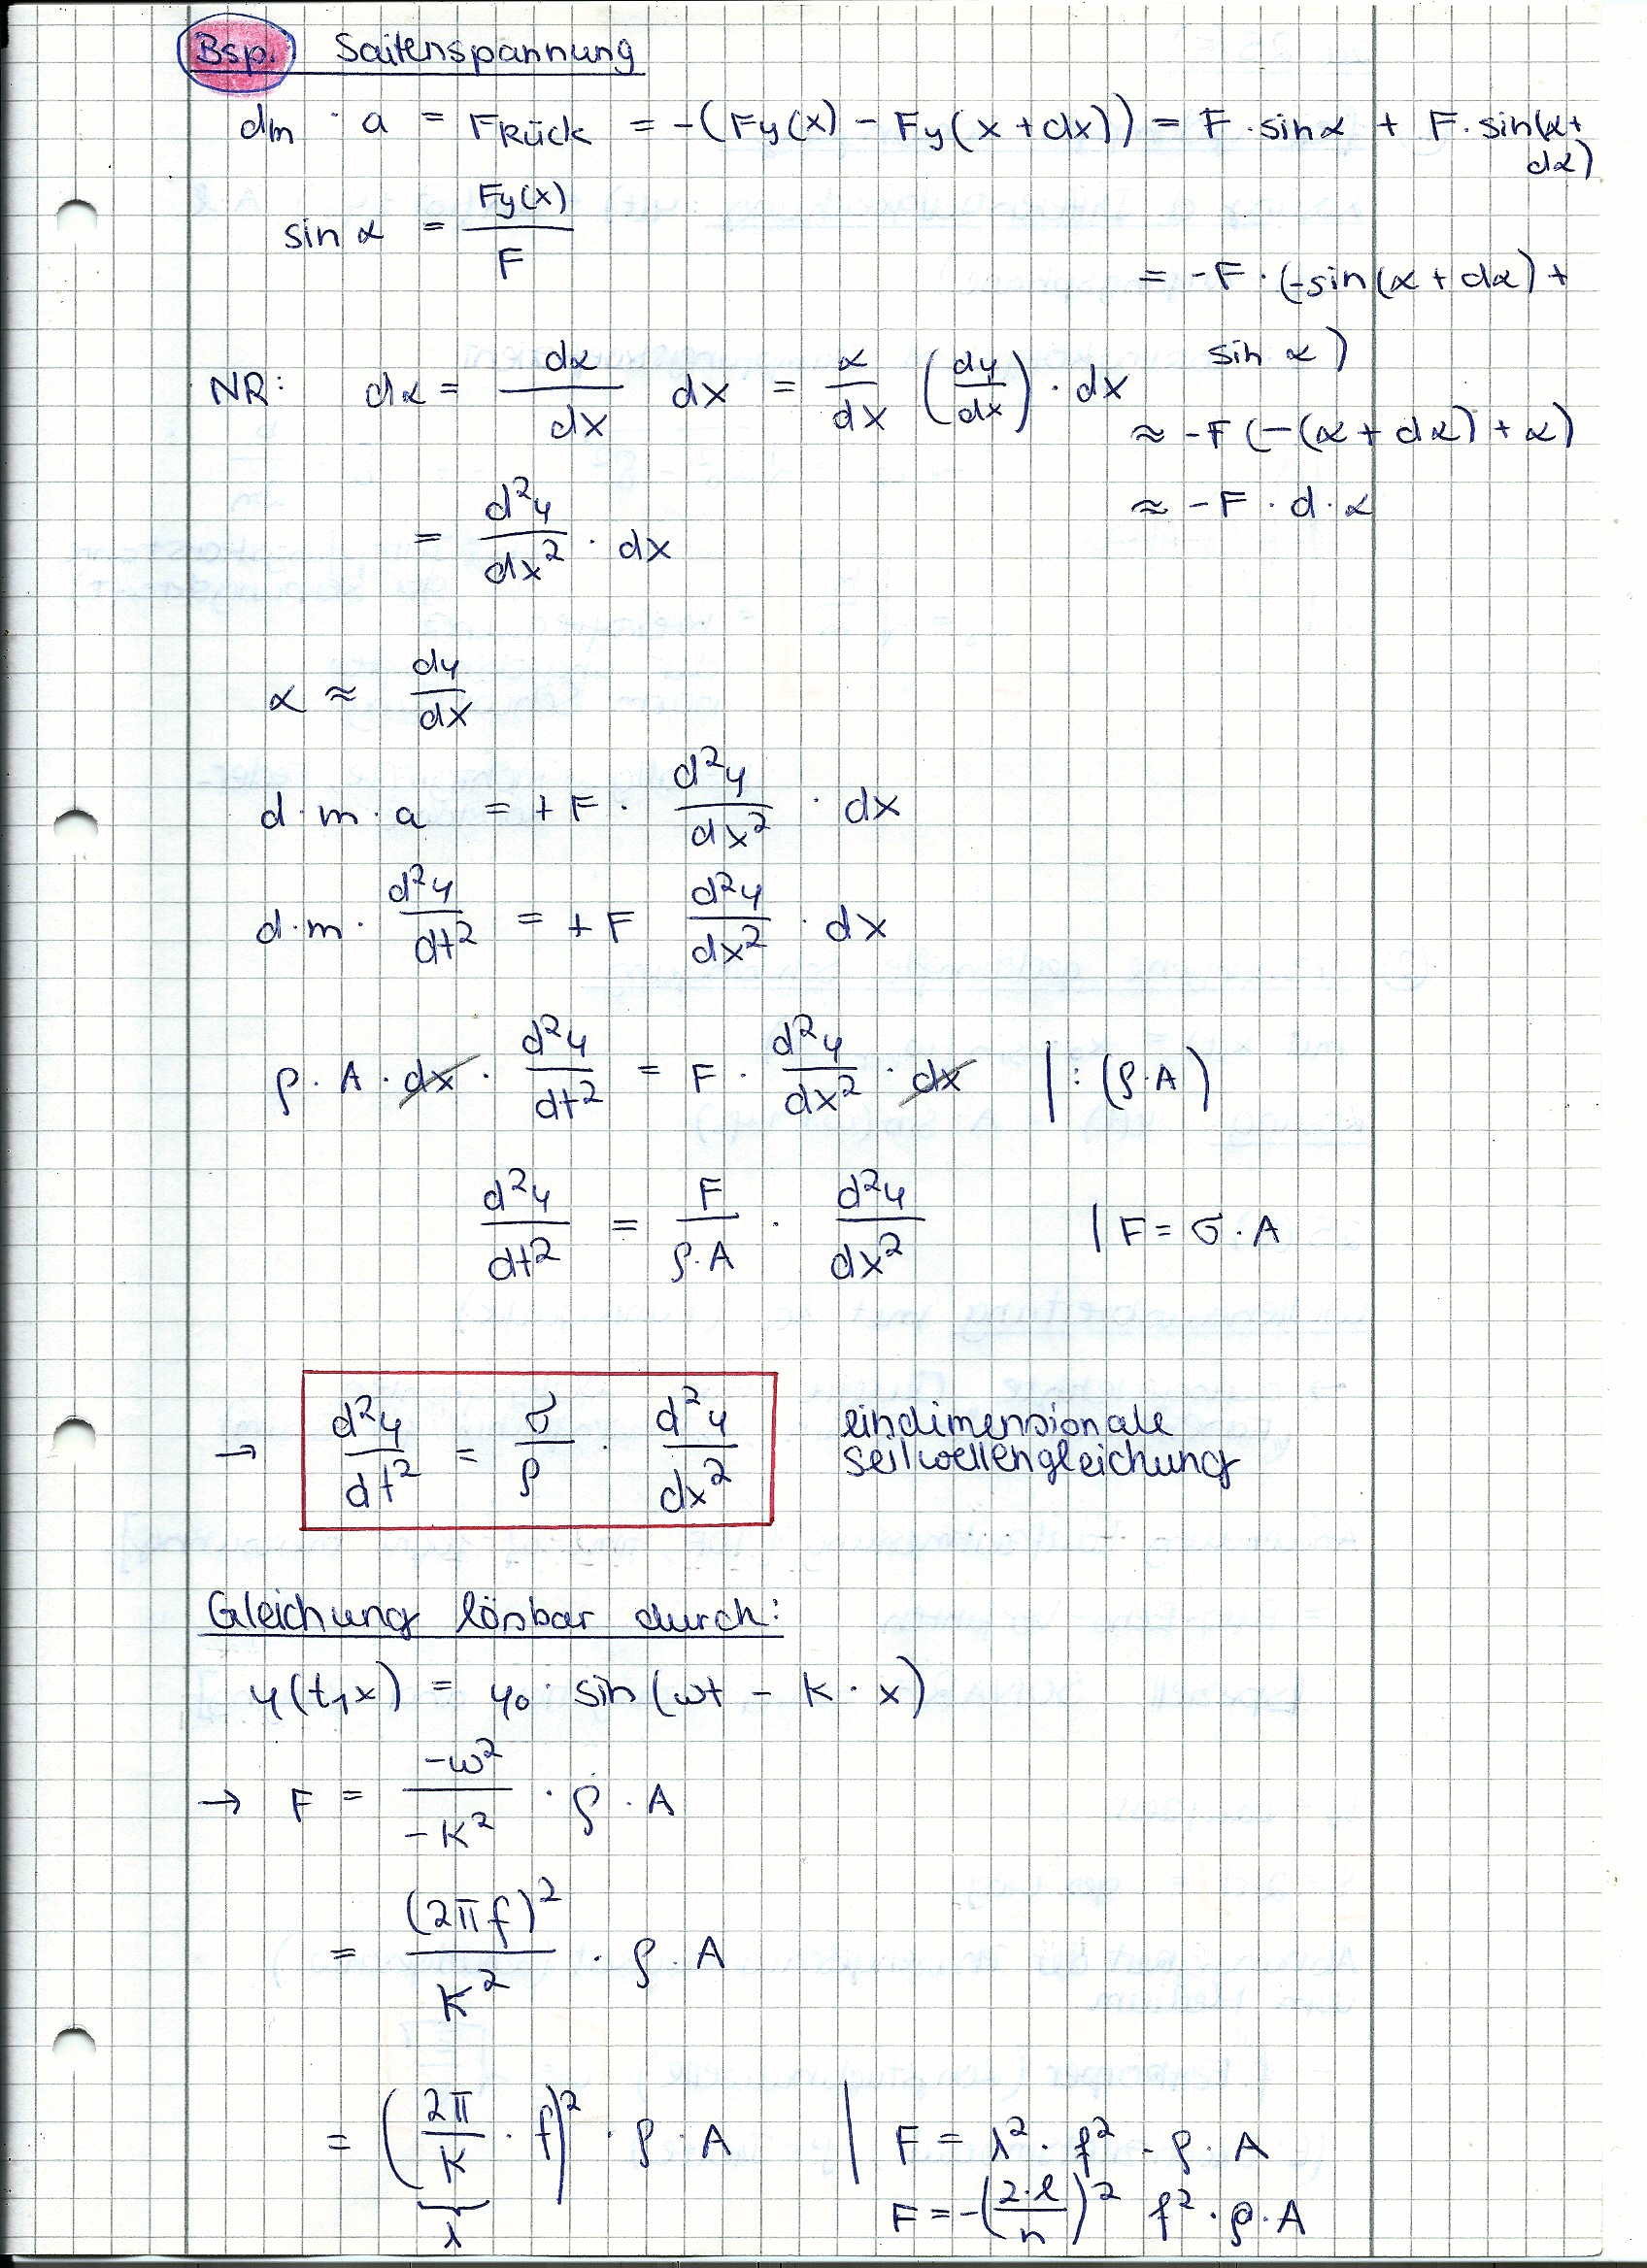 Bsp. Saitenspannung
dm · a = FRück = -(Fy(x) - Fy(x+dx)) = F · sin α + F · sin(α+
dα)
sin α = Fy(x)/F
= -F · (-sin(α + dα) +
sin α)
NR: dα = dα/dx dx = α/dx (dy/dx) · dx
≈ -F (-(α + dα) + α)
= d²y/dx² · dx
≈ -F · d · α
α ≈ dy/dx
d · m · a = +F · d²y/dx² · dx
d · m · d²y/dt² = +F d²y/dx² · dx
ρ · A · dx · d²y/dt² = F · d²y/dx² · dx | : (ρ·A)
d²y/dt² = F/(ρ·A) · d²y/dx² | F = σ · A
→ d²y/dt² = σ/ρ · d²y/dx² eindimensionale
Seilwellengleichung
Gleichung lösbar durch:
y(t,x) = y₀ · sin(ωt - k · x)
→ F = -ω²/-k² · ρ · A
= (2πf)²/k² · ρ · A
= (2π/k · f)² · ρ · A | F = λ² · f² · ρ · A
λ
F = -(2·l/n)² f² · ρ · A